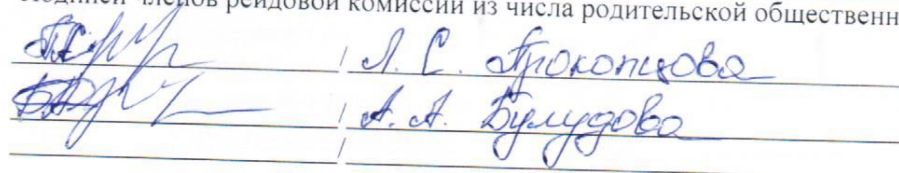 членов рейдовой комиссии из числа родительской общественн
/ Л. С. Прокопцова
/ А. А. Булудова
/